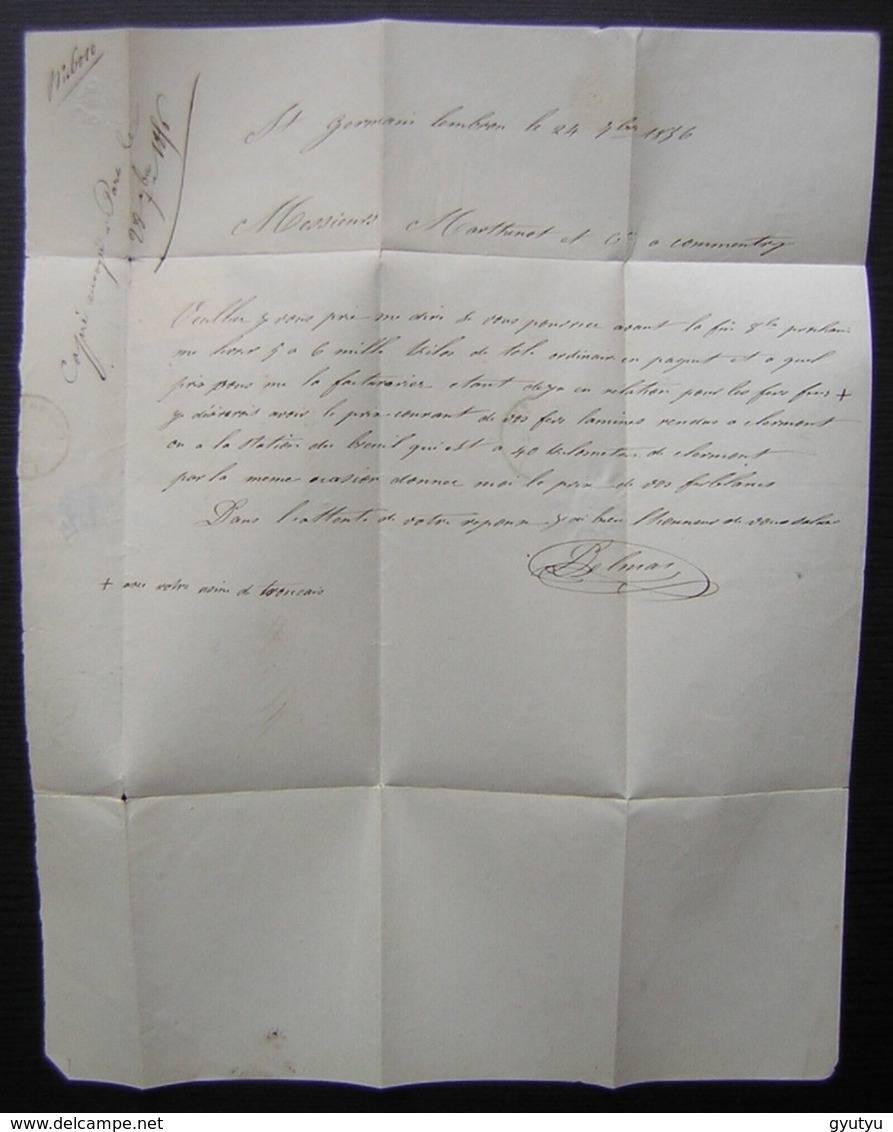 St Germain lembron le 24 7bre 1856
Messieurs Marthenot et Cie a commentry
Veuller je vous prie me dire si vous pourrier avant la fin 8bre prochain
me livrer 5 a 6 mille kilos de tole ordinaire en paquet et a quel
prix vous me la factureriez etant deja en relation pour les fers fins +
je désirerois avoir le prix courant de vos fers laminés rendus a clermont
ou a la station du breuil qui est a 40 kilometres de clermont
par la meme ocasion donner moi le prix de vos ferblancs
Dans l'attente de votre reponse j'ai bien l'honneur de vous saluer
Belmas
+ avec votre usine de troncais
Copié envoyé a Paris le
28 7bre 1856
delcampe.net
gyutyu